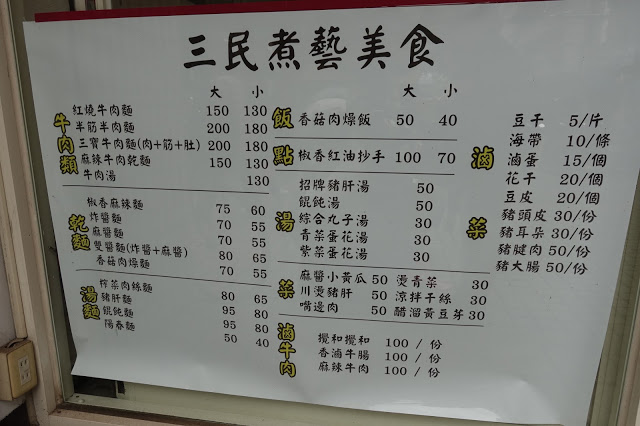 三民煮藝美食
牛肉類
大 小
紅燒牛肉麵 150 130
半筋半肉麵 200 180
三寶牛肉麵(肉+筋+肚) 200 180
麻辣牛肉乾麵 150 130
牛肉湯 130
乾麵
椒香麻辣麵 75 60
炸醬麵 70 55
麻醬麵 70 55
雙醬麵(炸醬+麻醬) 80 65
香菇肉燥麵 70 55
湯麵
榨菜肉絲麵 80 65
豬肝麵 95 80
餛飩麵 95 80
陽春麵 50 40
飯
大 小
香菇肉燥飯 50 40
點
椒香紅油抄手 100 70
湯
招牌豬肝湯 50
餛飩湯 50
綜合丸子湯 30
青菜蛋花湯 30
紫菜蛋花湯 30
菜
麻醬小黃瓜 50 燙青菜 30
川燙豬肝 50 涼拌干絲 30
嘴邊肉 50 醋溜黃豆芽 30
滷牛肉
攪和攪和 100 / 份
香滷牛腸 100 / 份
麻辣牛肉 100 / 份
滷菜
豆干 5/片
海帶 10/條
滷蛋 15/個
花干 20/個
豆皮 20/個
豬頭皮 30/份
豬耳朵 30/份
豬腱肉 50/份
豬大腸 50/份